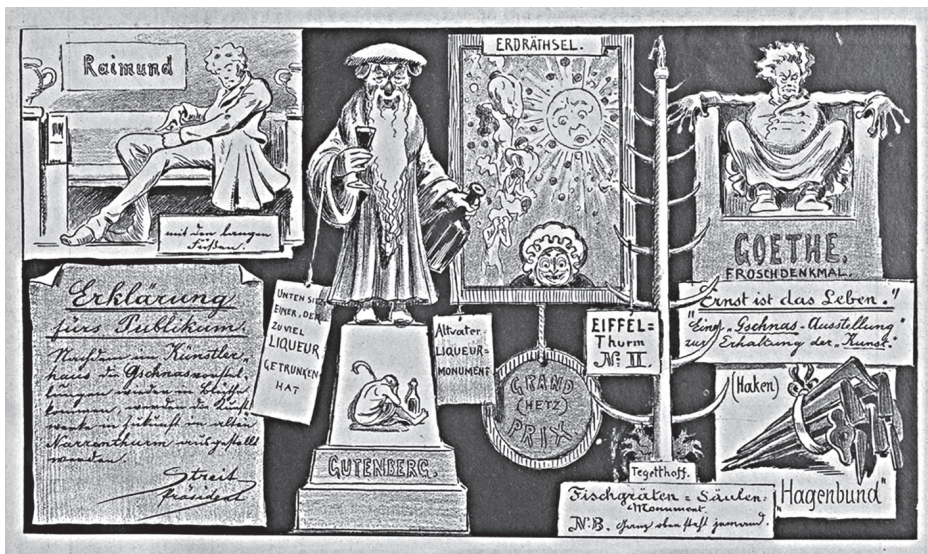 Raimund
mit den langen
Füßen.
Erklärung
fürs Publikum.
Nachdem im Künstler-
haus die Gschnasvorstel-
lungen wieder in
kommen, werden die Kunst-
werke in Zukunft im alten
Narrenthurm ausgestellt
werden.
Streit
Präsident
UNTEN SITZ
EINER, DER
ZUVIEL
LIQUEUR
GETRUNKEN
HAT
GUTENBERG.
Altvater-
LIQUEUR=
MONUMENT
ERDRÄTHSEL.
GRAND
(HETZ)
PRIX
EIFFEL=
Thurm
No. II.
Tegetthoff.
Fischgräten = Säulen:
Monument.
N.B. Ganz oben steht jemand.
GOETHE.
FROSCHDENKMAL.
"Ernst ist das Leben."
"Eine "Gschnas-Ausstellung"
zur Erhaltung der "Kunst."
(Haken)
"Hagenbund"